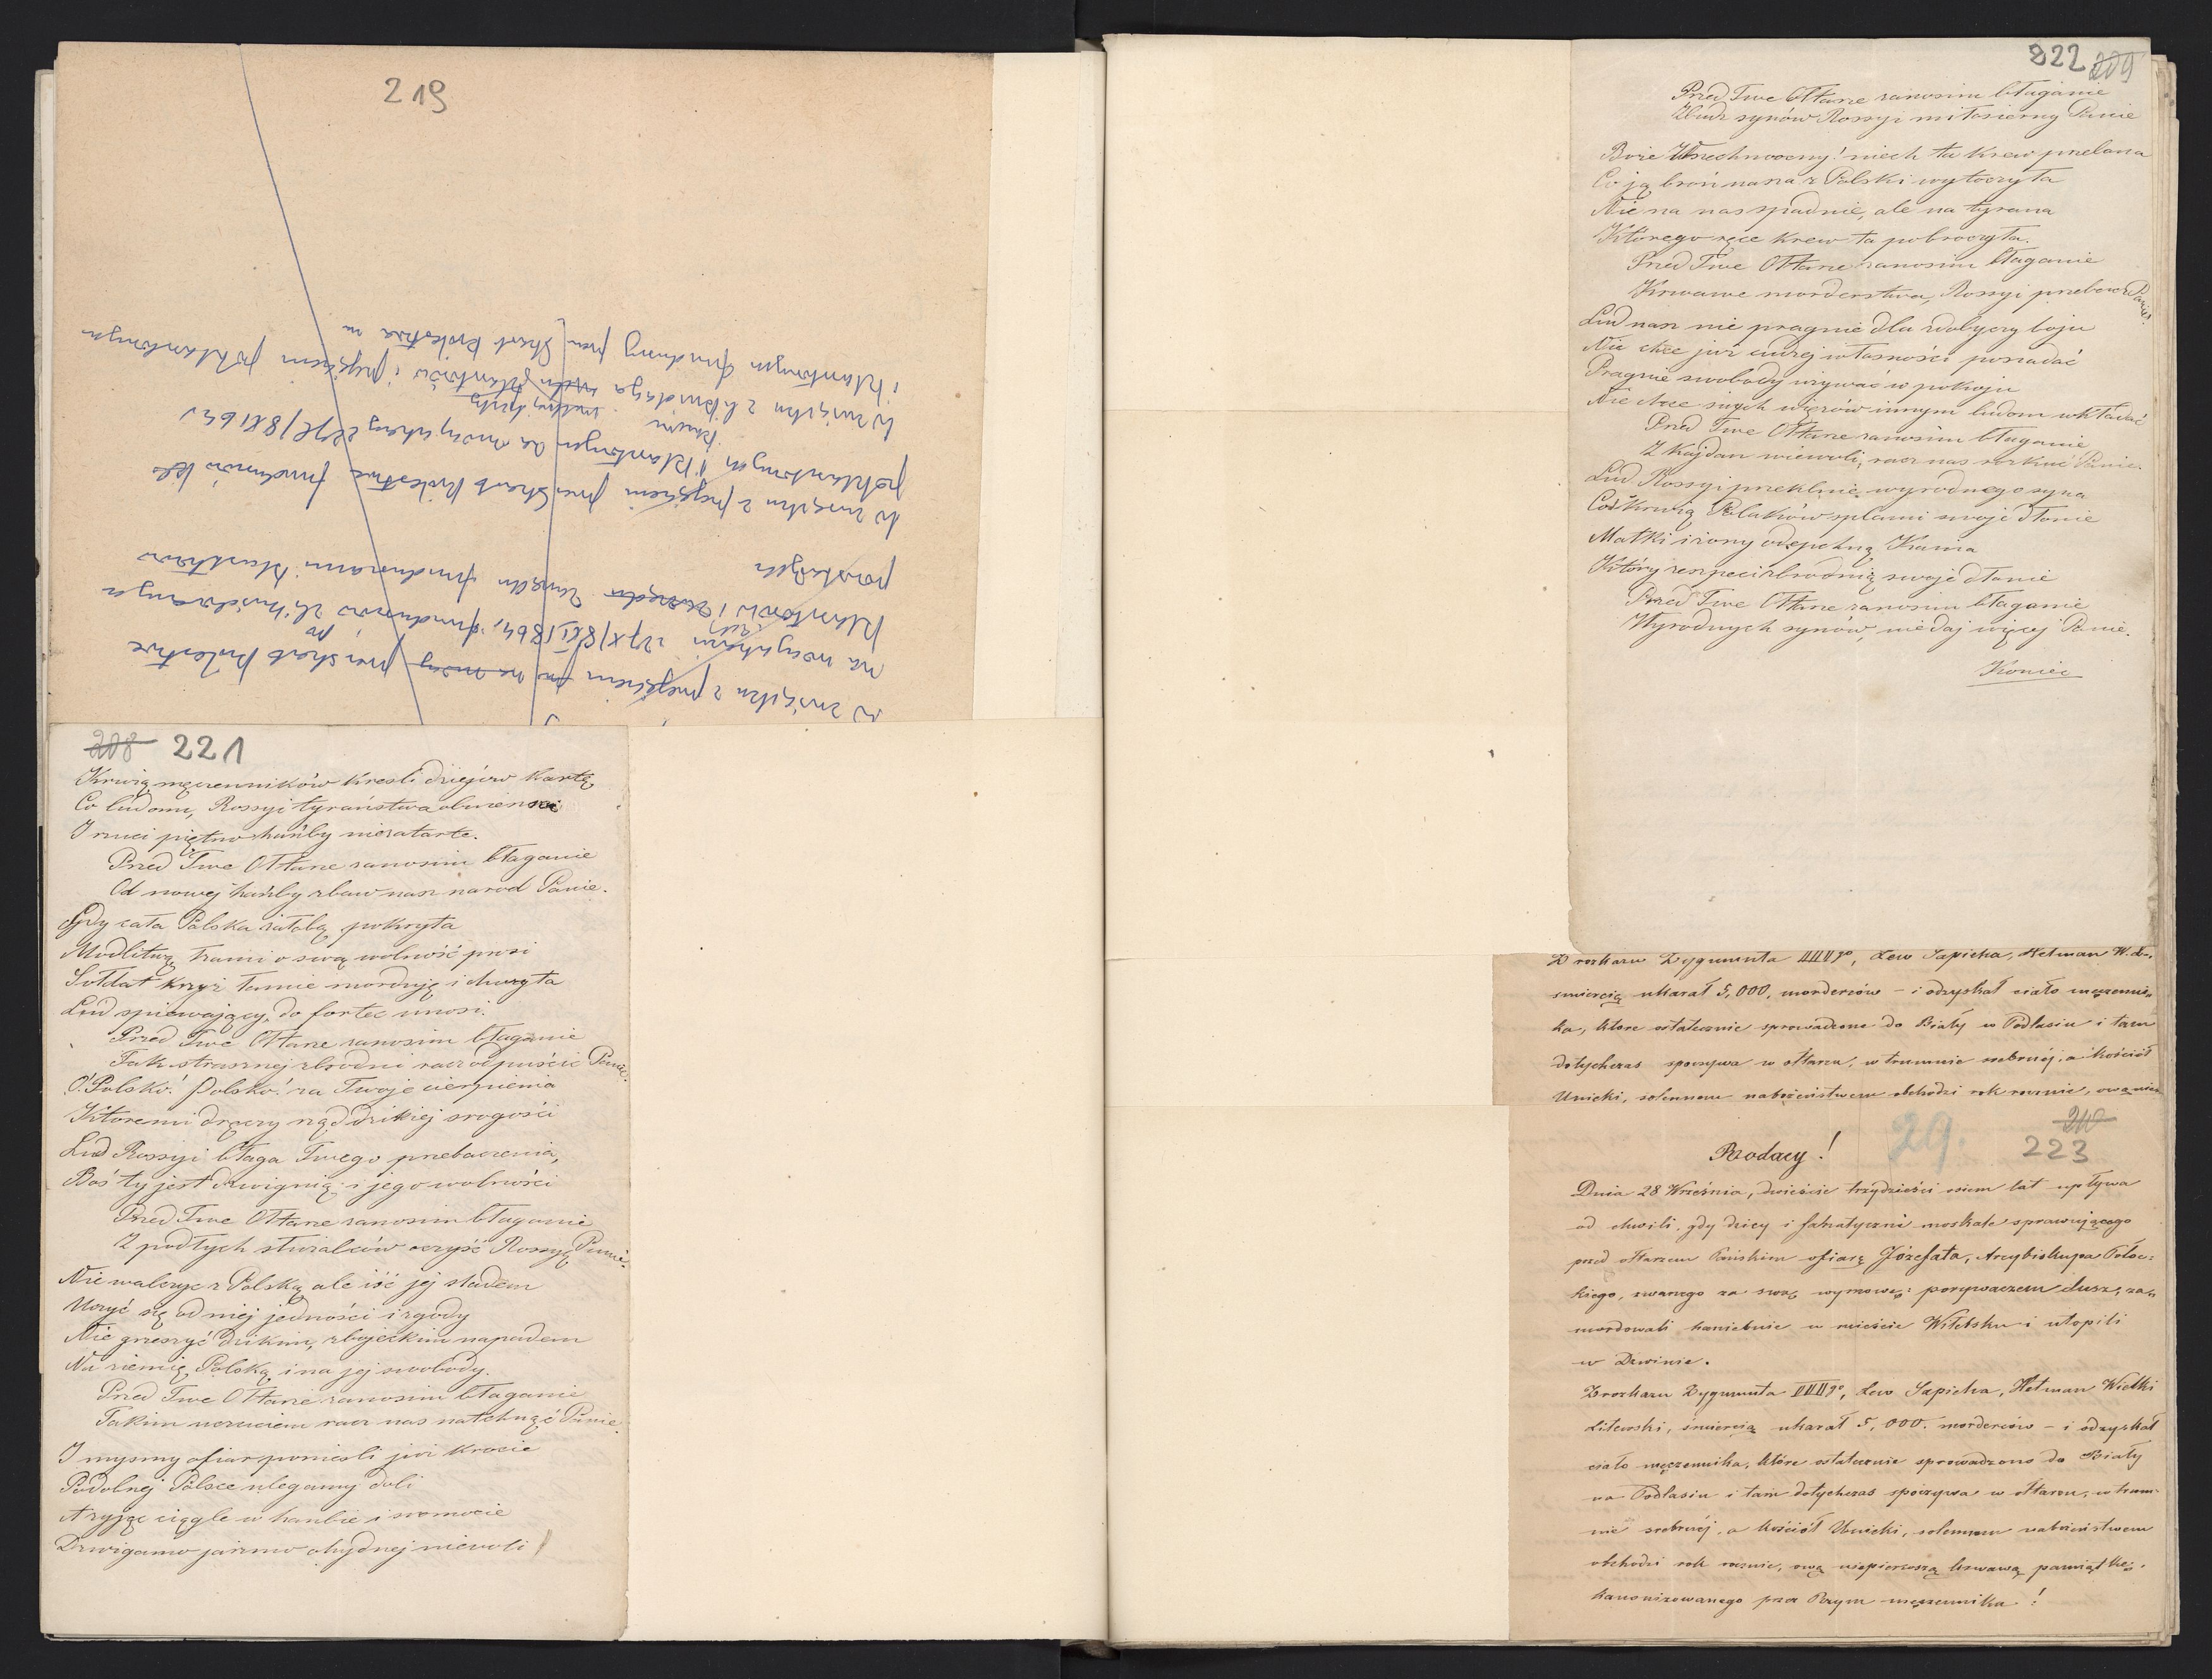 219
W związku z przejściem na mocy przez Skarb Królestwa
na mocy ukazu 27 X/8 XI 1864 r. funduszów zlikwidowanych
klasztorów i zarządu funduszami klasztorów
pozostałych
W związku z przejściem przez Skarb Królestwa funduszów
poklasztornych i klasztornych na mocy ukazu 27 X/8 XI 64 r.
W związku z likwidacją klasztorów i przejściem poklasztornych
i klasztornych funduszy przez Skarb Królestwa
208 221
Krwią męczenników kreśli dziejów kartę
Co ludom, Rossyi tyraństwa obwieszcza
I rzuci piętno hańby niezatarte.
Przed Twe Ołtarze zanosim błaganie
Od nowej hańby zbaw nasz naród Panie.
Gdy cała Polska żałobą pokryta
Modlitwą, łzami o swą wolność prosi
Sołdat krzyż łamie morduje i chwyta
Lud śpiewający, do fortec unosi.
Przed Twe Ołtarze zanosim błaganie
Tak strasznej zbrodni racz odpuścić Panie.
O! Polsko! Polsko! za Twoje cierpienia
Któremi dręczy rząd dzikiej srogości
Lud Rossyi błaga Twego przebaczenia,
Boś ty jest dźwignią i jego wolności
Przed Twe Ołtarze zanosim błaganie
Z podłych służalców oczyść Rossyę Panie.
Nie walczyć z Polską ale iść jej śladem
Uczyć się od niej jedności i zgody
Nie grzeszyć dzikim, zbójeckim napadem
Na ziemię Polską i na jej swobody.
Przed Twe Ołtarze zanosim błaganie
Takim uczuciem racz nas natchnąć Panie.
I myśmy ofiar ponieśli już krocie
Podobnej Polsce ulegamy doli
A żyjąc ciągle w hańbie i sromocie
Dzwigamo jarzmo ohydnej niewoli
822 209
Przed Twe Ołtarze zanosim błaganie
Zbudź synów Rossyi miłosierny Panie
Boże Wszechmocny! niech ta krew przelana
Co ją broń nasza z Polski wytoczyła
Nie na nas spadnie, ale na tyrana
Którego ręce krew ta pobroczyła.
Przed Twe Ołtarze zanosim błaganie
Krwawe morderstwa, Rossyi przebacz Panie.
Lud nasz nie pragnie dla zdobyczy boju
Nie chce już cudzej własności posiadać
Pragnie swobody używać w pokoju
Nie chce swych więzów innym ludom wkładać
Przed Twe Ołtarze zanosim błaganie
Z kajdan niewoli, racz nas rozkuć Panie.
Lud Rossyi przeklnie wyrodnego syna
Coś krwią Polaków splami swoje dłonie
Matki i żony odepchną Kaima
Który zeszpeci zbrodnią swoje dłonie
Przed Twe Ołtarze zanosim błaganie
Wyrodnych synów, nie daj więcej Panie.
Koniec
Z rozkazu Zygmunta IIIIgo, Lew Sapieha, Hetman W. L.,
śmiercią ukarał 5,000, morderców – i odzyskał ciało męczenni„
ka, które ostatecznie sprowadzono do Biały w Podlasiu i tam
dotychczas spoczywa w ołtarzu, w trumnie srebrnéj, a kościół
Unicki, solennem nabożeństwem obchodzi rok rocznie, ową nie„
29. 210
223
Rodacy!
Dnia 28 Września, dwieście trzydzieści osiem lat upływa
od chwili, gdy dzicy i fanatyczni moskale sprawującego
przed ołtarzem Pańskim ofiarę Józefata, Arcybiskupa Połoc:
kiego, zwanego za swą wymowę: porywaczem dusz, za„
mordowali haniebnie w mieście Witebsku i utopili
w Dzwinie.
Z rozkazu Zygmunta IIIIgo, Lew Sapieha, Hetman Wielki
Litewski, śmiercią ukarał 5,000. morderców – i odzyskał
ciało męczennika, które ostatecznie sprowadzono do Biały
na Podlasiu i tam dotychczas spoczywa w ołtarzu, w trum-
nie srebrnéj, a kościół Unicki, solennem nabożeństwem
obchodzi rok rocznie, ową najpierwszą krwawą pamiątkę:
kanonizowanego przez Rzym męczennika!